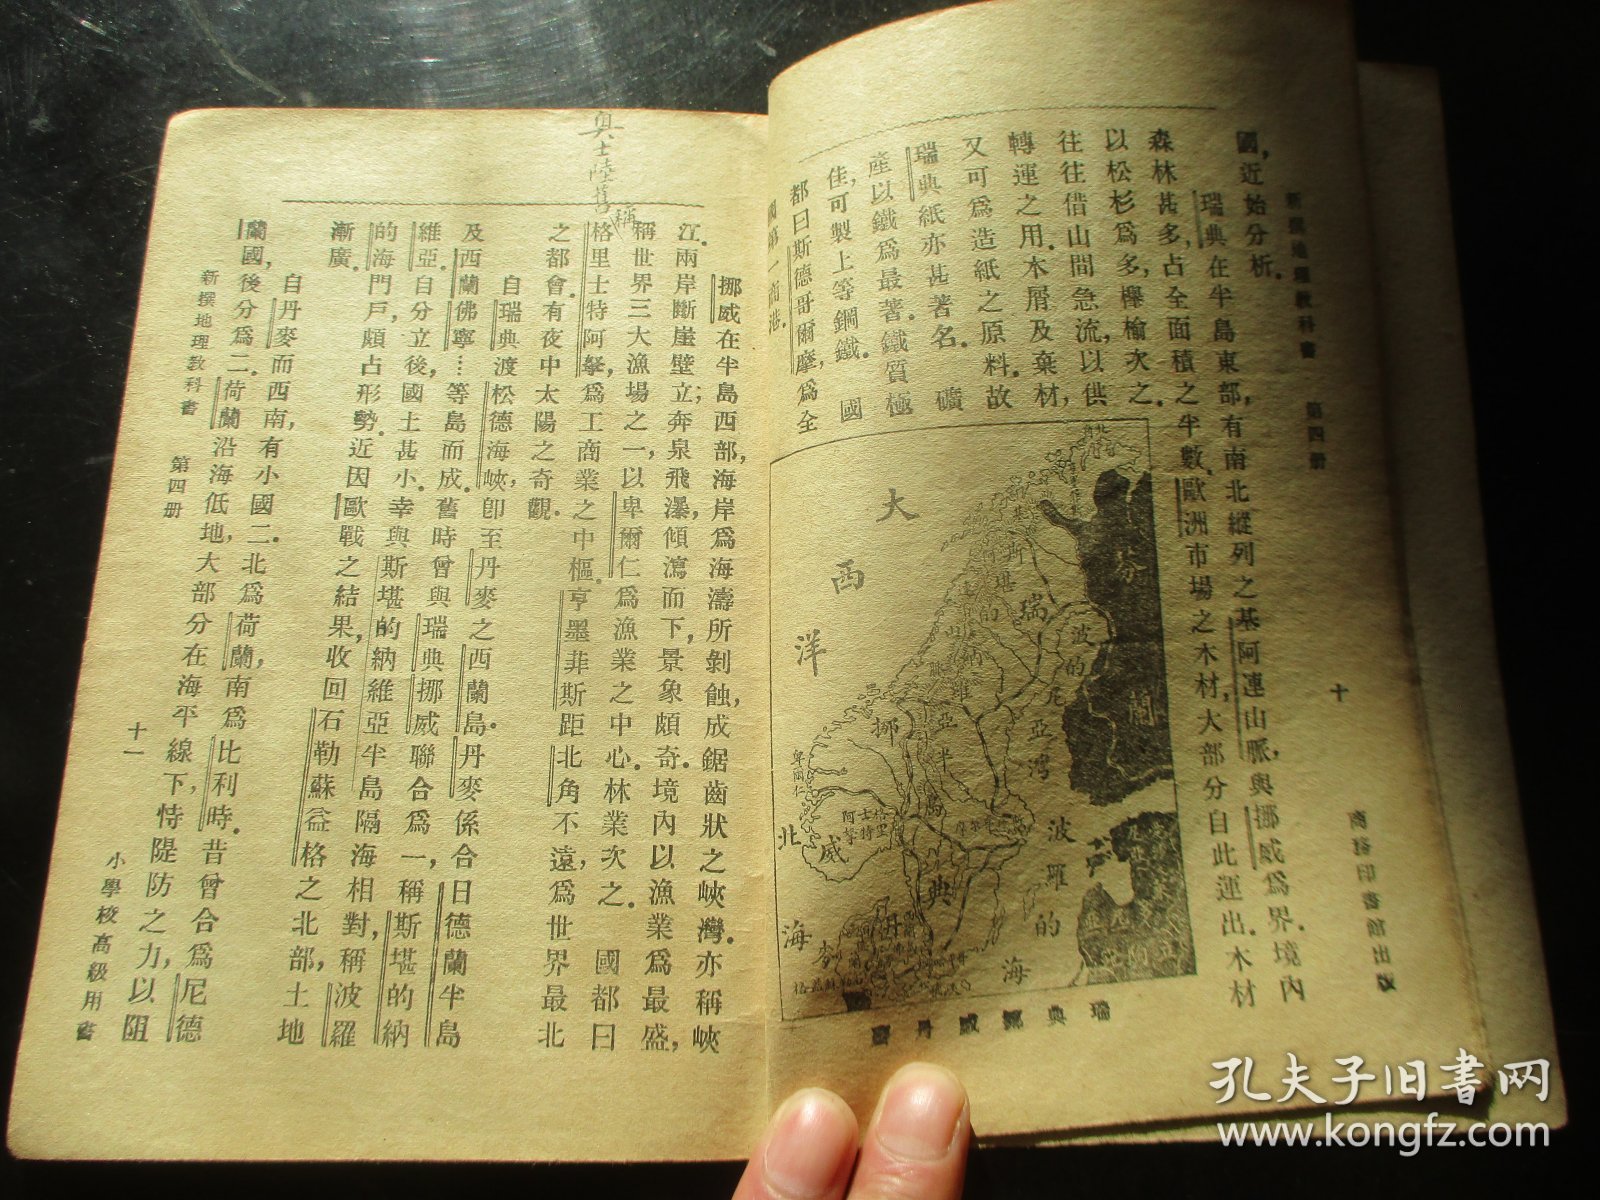 新撰地理教科書 第四册 十 商務印書館出版
國,近始分析.
瑞典在半島東部,有南北縱列之基阿連山脈,與挪威爲界.境內
森林甚多,占全面積之半數.歐洲市場之木材,大部分自此運出.木材
以松杉爲多,櫸榆次之.
往往借山間急流,以供
轉運之用.木屑及棄材,
又可爲造紙之原料.故
瑞典紙亦甚著名. 礦
產以鐵爲最著.鐵質極
佳,可製上等鋼鐵. 國
都曰斯德哥爾摩,爲全
國第一商港.
大西洋
北海
波羅的海
波的尼亞灣
芬蘭
瑞典
挪威
丹麥
斯堪的納維亞半島
卑爾仁
格里士特阿拏
瑞典挪威丹麥
奥士陸舊稱
挪威在半島西部,海岸爲海濤所剝蝕,成鋸齒狀之峽灣.亦稱峽
江.兩岸斷崖壁立;奔泉飛瀑,傾瀉而下,景象頗奇.境內以漁業爲最盛,
稱世界三大漁場之一,以卑爾仁爲漁業之中心.林業次之. 國都曰
格里士特阿拏,爲工商業之中樞.亨墨菲斯距北角不遠,爲世界最北
之都會.有夜中太陽之奇觀.
自瑞典渡松德海峽,卽至丹麥之西蘭島.丹麥係合日德蘭半島
及西蘭佛寧……等島而成.舊時曾與瑞典挪威聯合爲一,稱斯堪的納
維亞.自分立後,國土甚小.幸與斯堪的納維亞半島隔海相對,稱波羅
的海門戶,頗占形勢.近因歐戰之結果,收回石勒蘇益格之北部,土地
漸廣.
自丹麥而西南,有小國二.北爲荷蘭,南爲比利時.昔曾合爲尼德
蘭國,後分爲二.荷蘭沿海低地,大部分在海平線下,恃隄防之力,以阻
新撰地理教科書 第四册 十一 小學校高級用書
孔夫子旧書网
www.kongfz.com